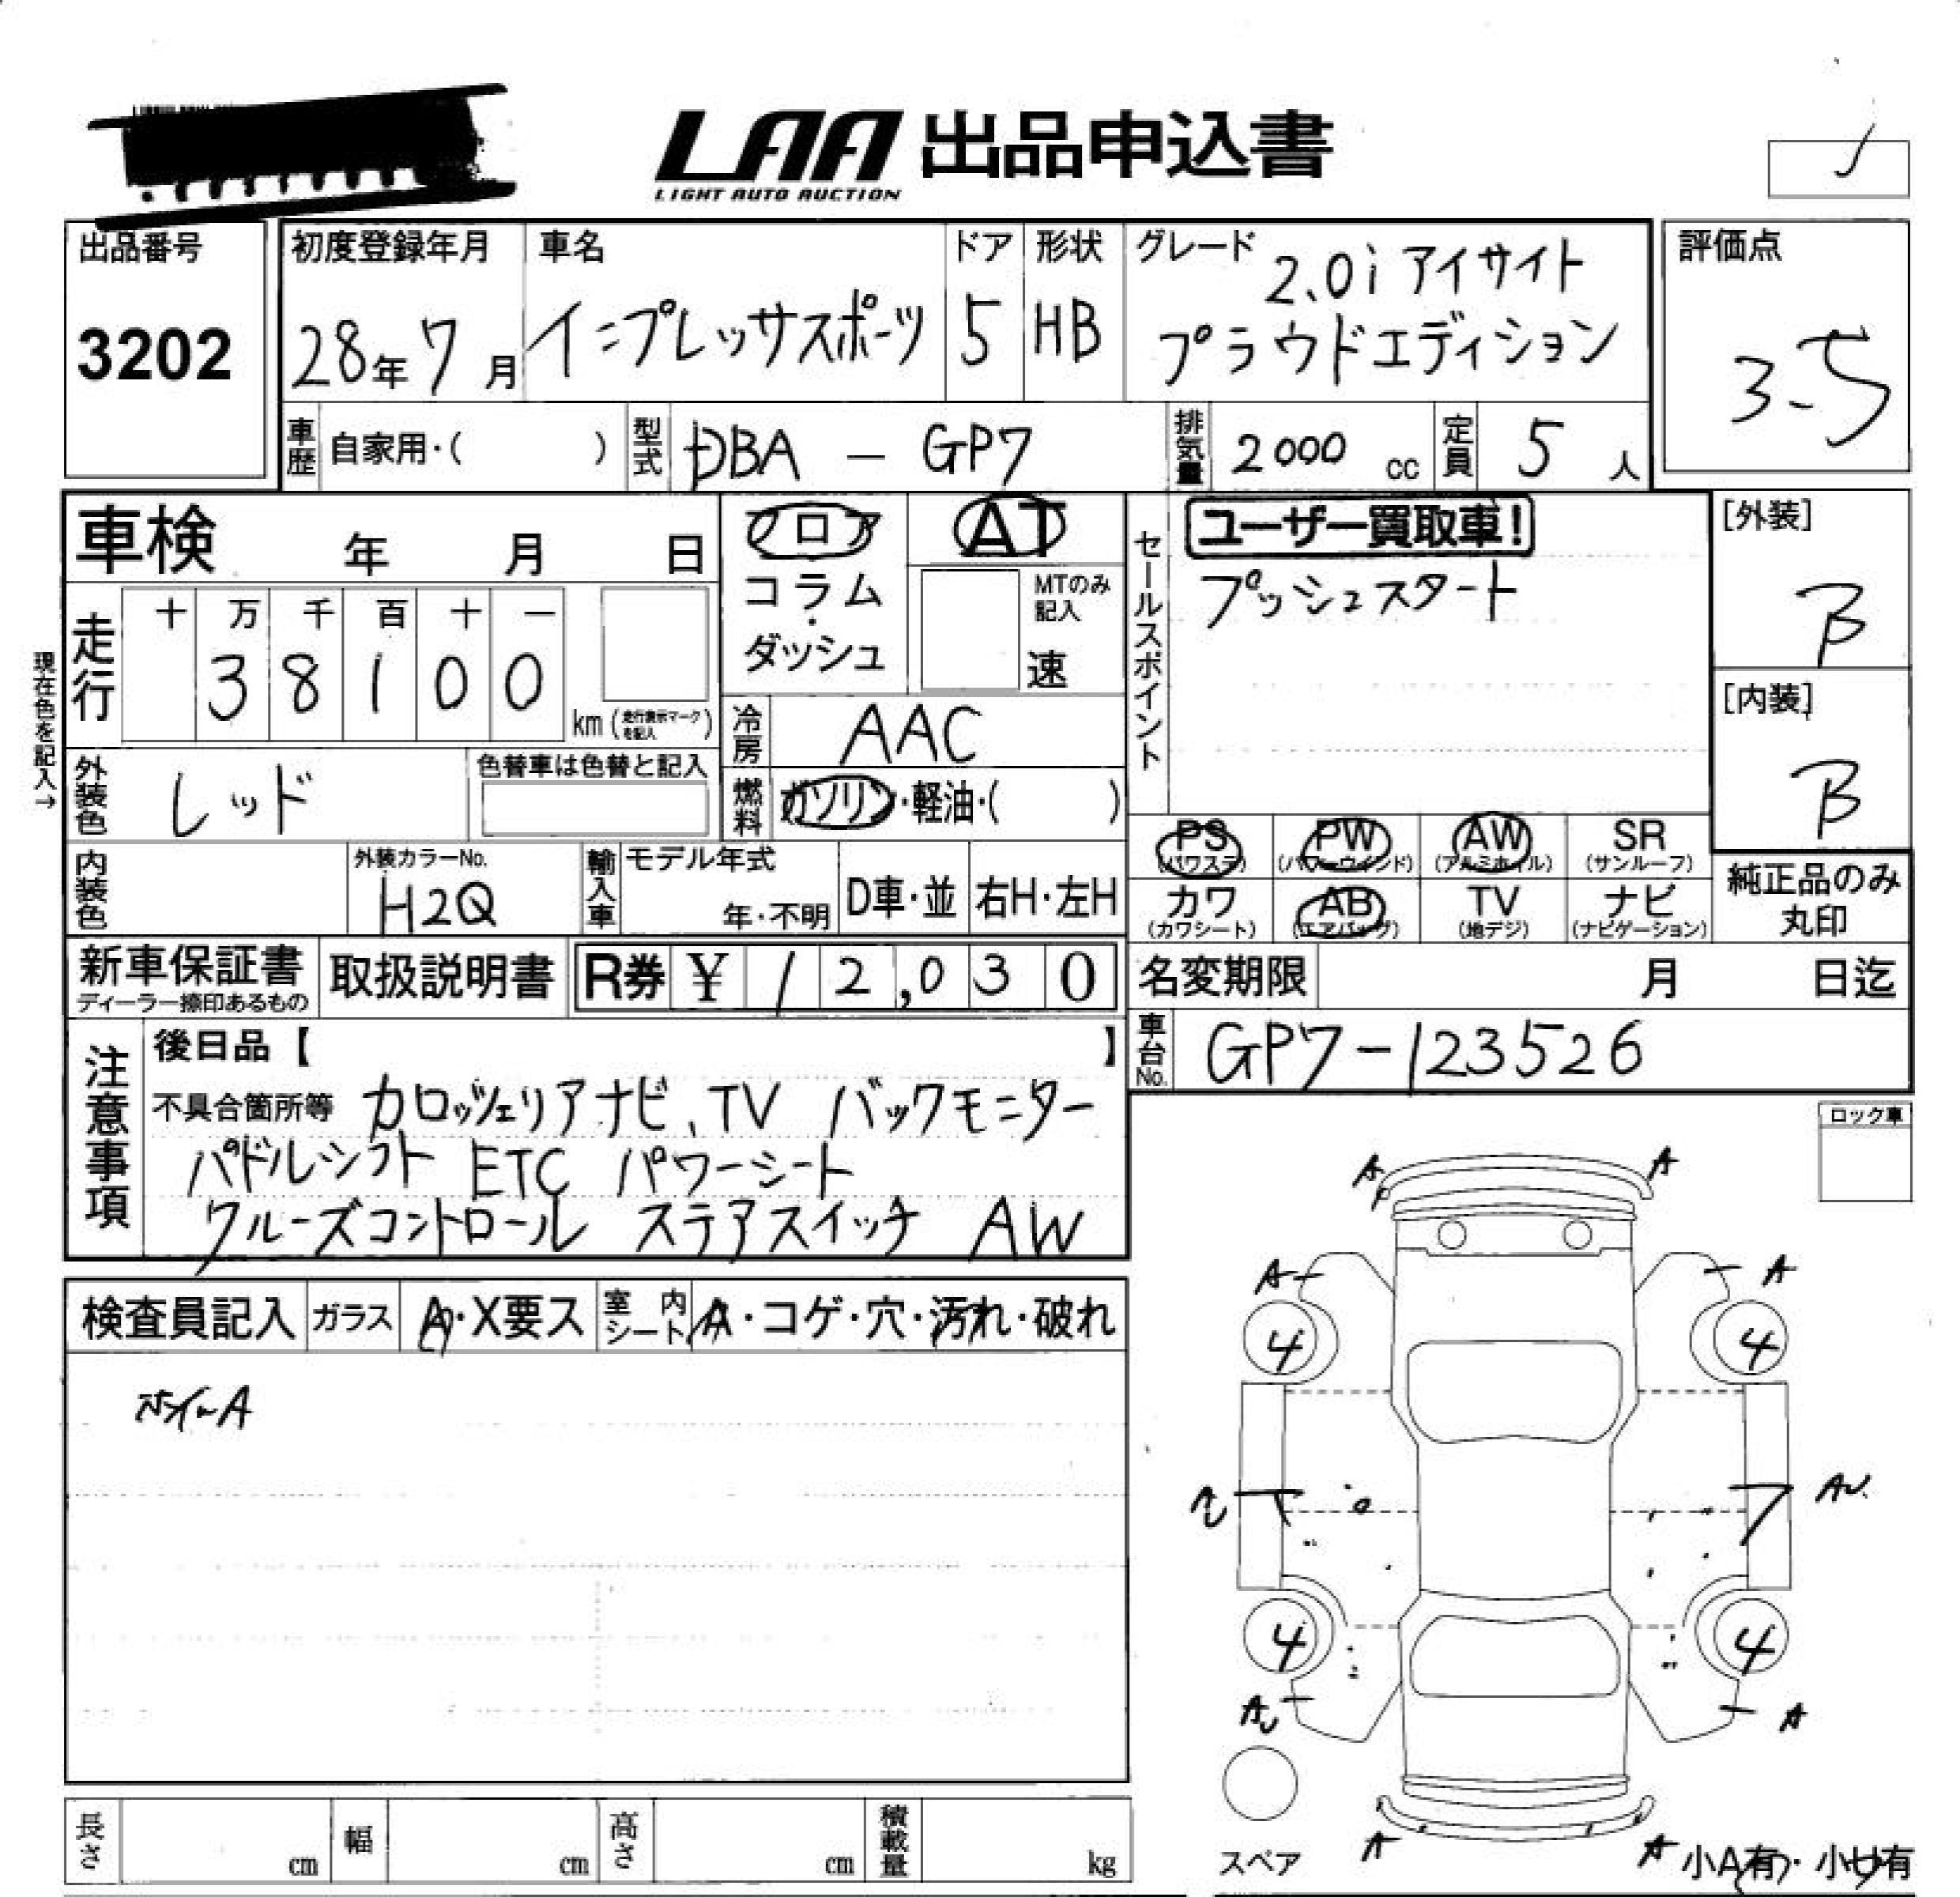 LAA 出品申込書
LIGHT AUTO AUCTION
出品番号
3202
初度登録年月
28年7月
車名
インプレッサスポーツ
ドア
5
形状
HB
グレード
2.0i アイサイト
プラウドエディション
評価点
3-5
車歴
自家用・( )
型式
DBA - GP7
排気量
2000 cc
定員
5 人
車検 年 月 日
フロア
コラム
・
ダッシュ
AT
MTのみ
記入
速
セールスポイント
ユーザー買取車!
プッシュスタート
[外装]
B
[内装]
B
現在色を記入→
走行
十 万 千 百 十 一
3 8 1 0 0
km (走行表示マークを記入)
冷房
AAC
外装色
レッド
色替車は色替と記入
燃料
ガソリン・軽油・( )
PS
(パワステ)
PW
(パワーウィンド)
AW
(アルミホイル)
SR
(サンルーフ)
カワ
(カワシート)
AB
(エアバッグ)
TV
(地デジ)
ナビ
(ナビゲーション)
純正品のみ
丸印
内装色
外装カラーNo.
H2Q
輸入車
モデル年式
年・不明
D車・並
右H・左H
新車保証書
ディーラー捺印あるもの
取扱説明書
R券 ¥ 12,030
名変期限 月 日迄
車台No.
GP7-123526
注意事項
後日品【 】
不具合箇所等 カロッツェリアナビ、TV バックモニター
パドルシフト ETC パワーシート
クルーズコントロール ステアスイッチ AW
ロック車
検査員記入
ガラス
A・X要ス
室内シート
A・コゲ・穴・汚れ・破れ
A A
A A
4 4
AU
4 4
AU A
A A
スペア
小A有・小U有
長さ cm
幅 cm
高さ cm
積載量 kg